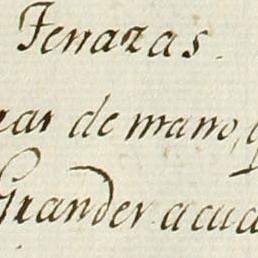 Tenazas.
de mano,
Grandes acua